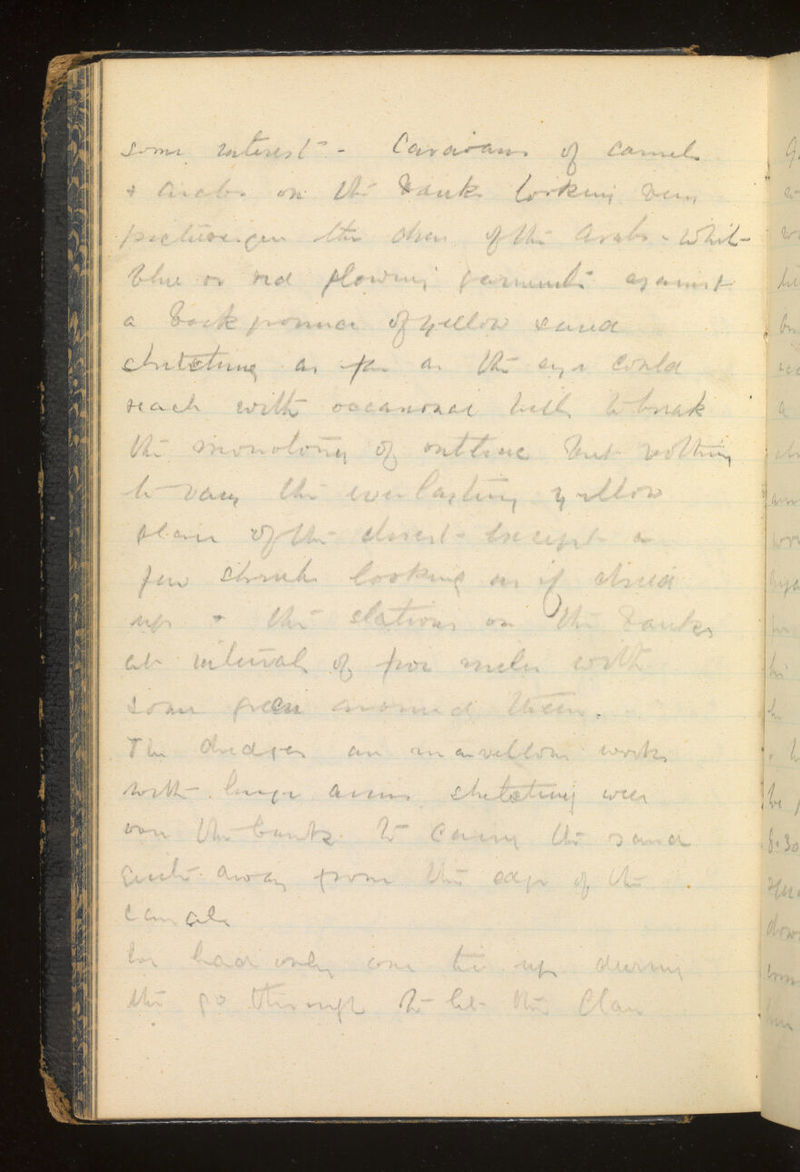 some interest - Caravans of camels
& Arabs on the banks looking very
picturesque the dress of the Arabs - white
blue or red flowing garments against
a back ground of yellow sand
stretching as far as the eye could
reach with occasional hills to break
the monotony of outline but nothing
to vary the everlasting yellow
plain of the desert except a
few shrubs looking as if dried
up & the stations on the banks
at intervals of four miles with
some green around them.
The dredges are marvellous works
with huge arms stretching well
over the banks to carry the sand
quite away from the edge of the
canal
We had only one tie up during
the go through to let the Clan